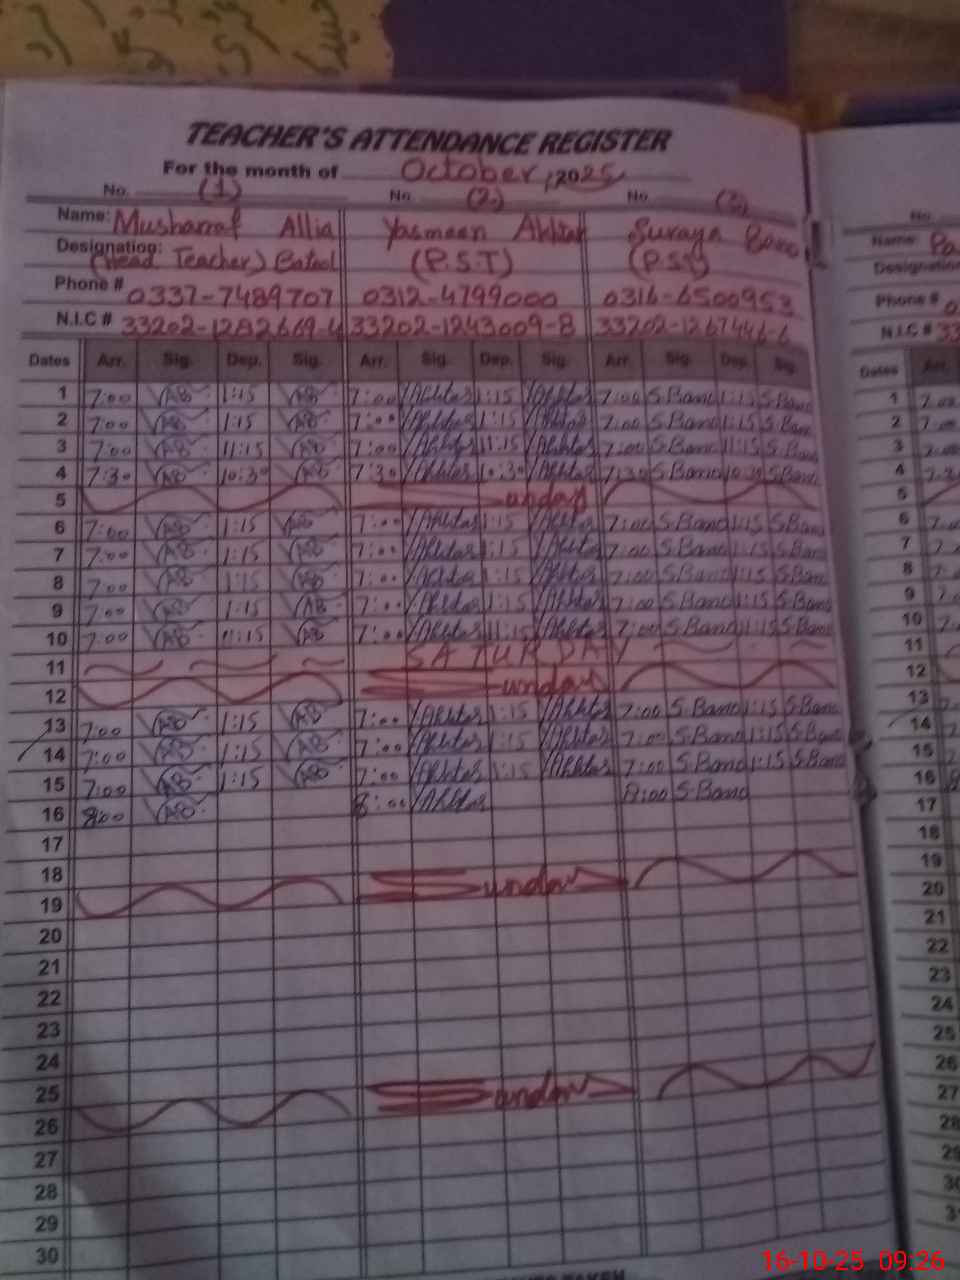 TEACHER'S ATTENDANCE REGISTER
For the month of October, 2025
No. (1) No. (2) No. (3)
Name: Musharraf Allia Yasmeen Akhtar Suraya Bano
Designation: (Head Teacher) Batool (P.S.T) (PST)
Phone # 0337-7489707 0312-4799000 0316-6500953
N.I.C # 33202-1282669-4 33202-1243009-8 33202-1267446-6
Dates Arr. Sig. Dep. Sig. Arr. Sig. Dep. Sig. Arr. Sig. Dep. Sig.
1 7:00 AB 1:15 AB 7:00 Akhtar 1:15 Akhtar 7:00 S.Bano 1:15 S.Bano
2 7:00 AB 1:15 AB 7:00 Akhtar 1:15 Akhtar 7:00 S.Bano 1:15 S.Bano
3 7:00 AB 11:15 AB 7:00 Akhtar 11:15 Akhtar 7:00 S.Bano 11:15 S.Bano
4 7:30 AB 10:30 AB 7:30 Akhtar 10:30 Akhtar 7:30 S.Bano 10:30 S.Bano
5 Sunday
6 7:00 AB 1:15 AB 7:00 Akhtar 1:15 Akhtar 7:00 S.Bano 1:15 S.Bano
7 7:00 AB 1:15 AB 7:00 Akhtar 1:15 Akhtar 7:00 S.Bano 1:15 S.Bano
8 7:00 AB 1:15 AB 7:00 Akhtar 1:15 Akhtar 7:00 S.Bano 1:15 S.Bano
9 7:00 AB 1:15 AB 7:00 Akhtar 1:15 Akhtar 7:00 S.Bano 1:15 S.Bano
10 7:00 AB 11:15 AB 7:00 Akhtar 11:15 Akhtar 7:00 S.Bano 11:15 S.Bano
11 SATURDAY
12 Sunday
13 7:00 AB 1:15 AB 7:00 Akhtar 1:15 Akhtar 7:00 S.Bano 1:15 S.Bano
14 7:00 AB 1:15 AB 7:00 Akhtar 1:15 Akhtar 7:00 S.Bano 1:15 S.Bano
15 7:00 AB 1:15 AB 7:00 Akhtar 1:15 Akhtar 7:00 S.Bano 1:15 S.Bano
16 8:00 AB 8:00 Akhtar 8:00 S.Bano
17
18
19 Sunday
20
21
22
23
24
25
26 Sunday
27
28
29
30
No.
Name:
Designation
Phone #
N.I.C # 33
Dates Arr.
1
2
3
4
5
6
7
8
9
10
11
12
13
14
15
16
17
18
19
20
21
22
23
24
25
26
27
28
29
30
16-10-25 09:26